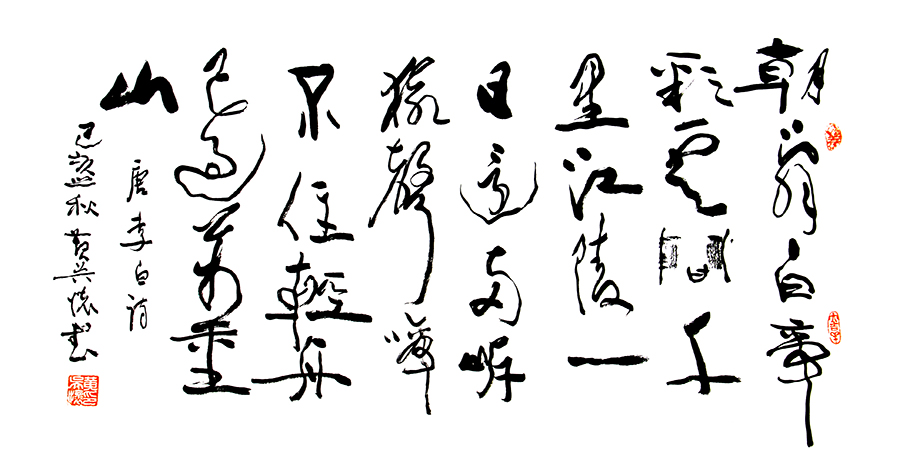 朝辭白帝
彩雲間千
里江陵一
日還兩岸
猿聲啼
不住輕舟
已過萬重
山
唐李白詩
己秋黄兴懷书